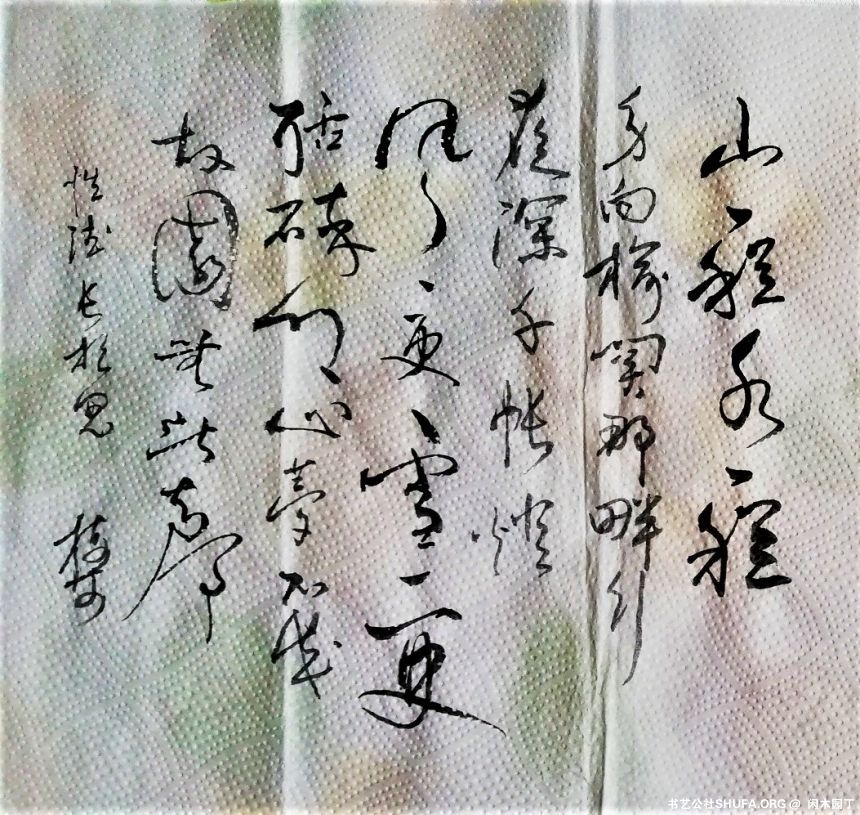 山一程水一程
身向榆関那畔行
夜深千帐燈
风一更雪一更
聒碎鄉心夢不成
故園無此声
性德长相思
书艺公社SHUFA.ORG @ 闲木园丁